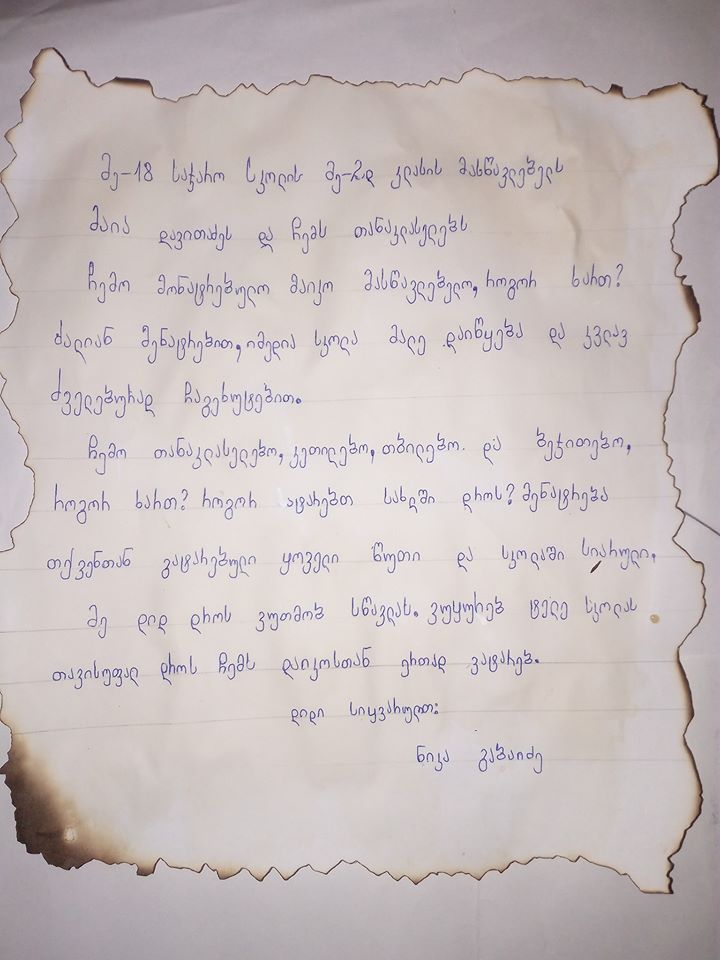 მე-18 საჯარო სკოლის მე-2დ კლასის მასწავლებელს
მაია დავითაძეს და ჩემს თანაკლასელებს
ჩემო მონატრებულო მაიკო მასწავლებელო, როგორ ხართ?
ძალიან მენატრებით, იმედია სკოლა მალე დაიწყება და კვლავ
ძველებურად ჩაგეხუტებით.
ჩემო თანაკლასელებო, კეთილებო, თბილებო. და ბეჯითებო,
როგორ ხართ? როგორ ატარებთ სახლში დროს? მენატრება
თქვენთან გატარებული ყოველი წუთი და სკოლაში სიარული.
მე დიდ დროს ვუთმობ სწავლას. ვუყურებ ტელე სკოლას
თავისუფალ დროს ჩემს დაიკოსთან ერთად ვატარებ.
დიდი სიყვარულით:
ნიკა გაბაიძე